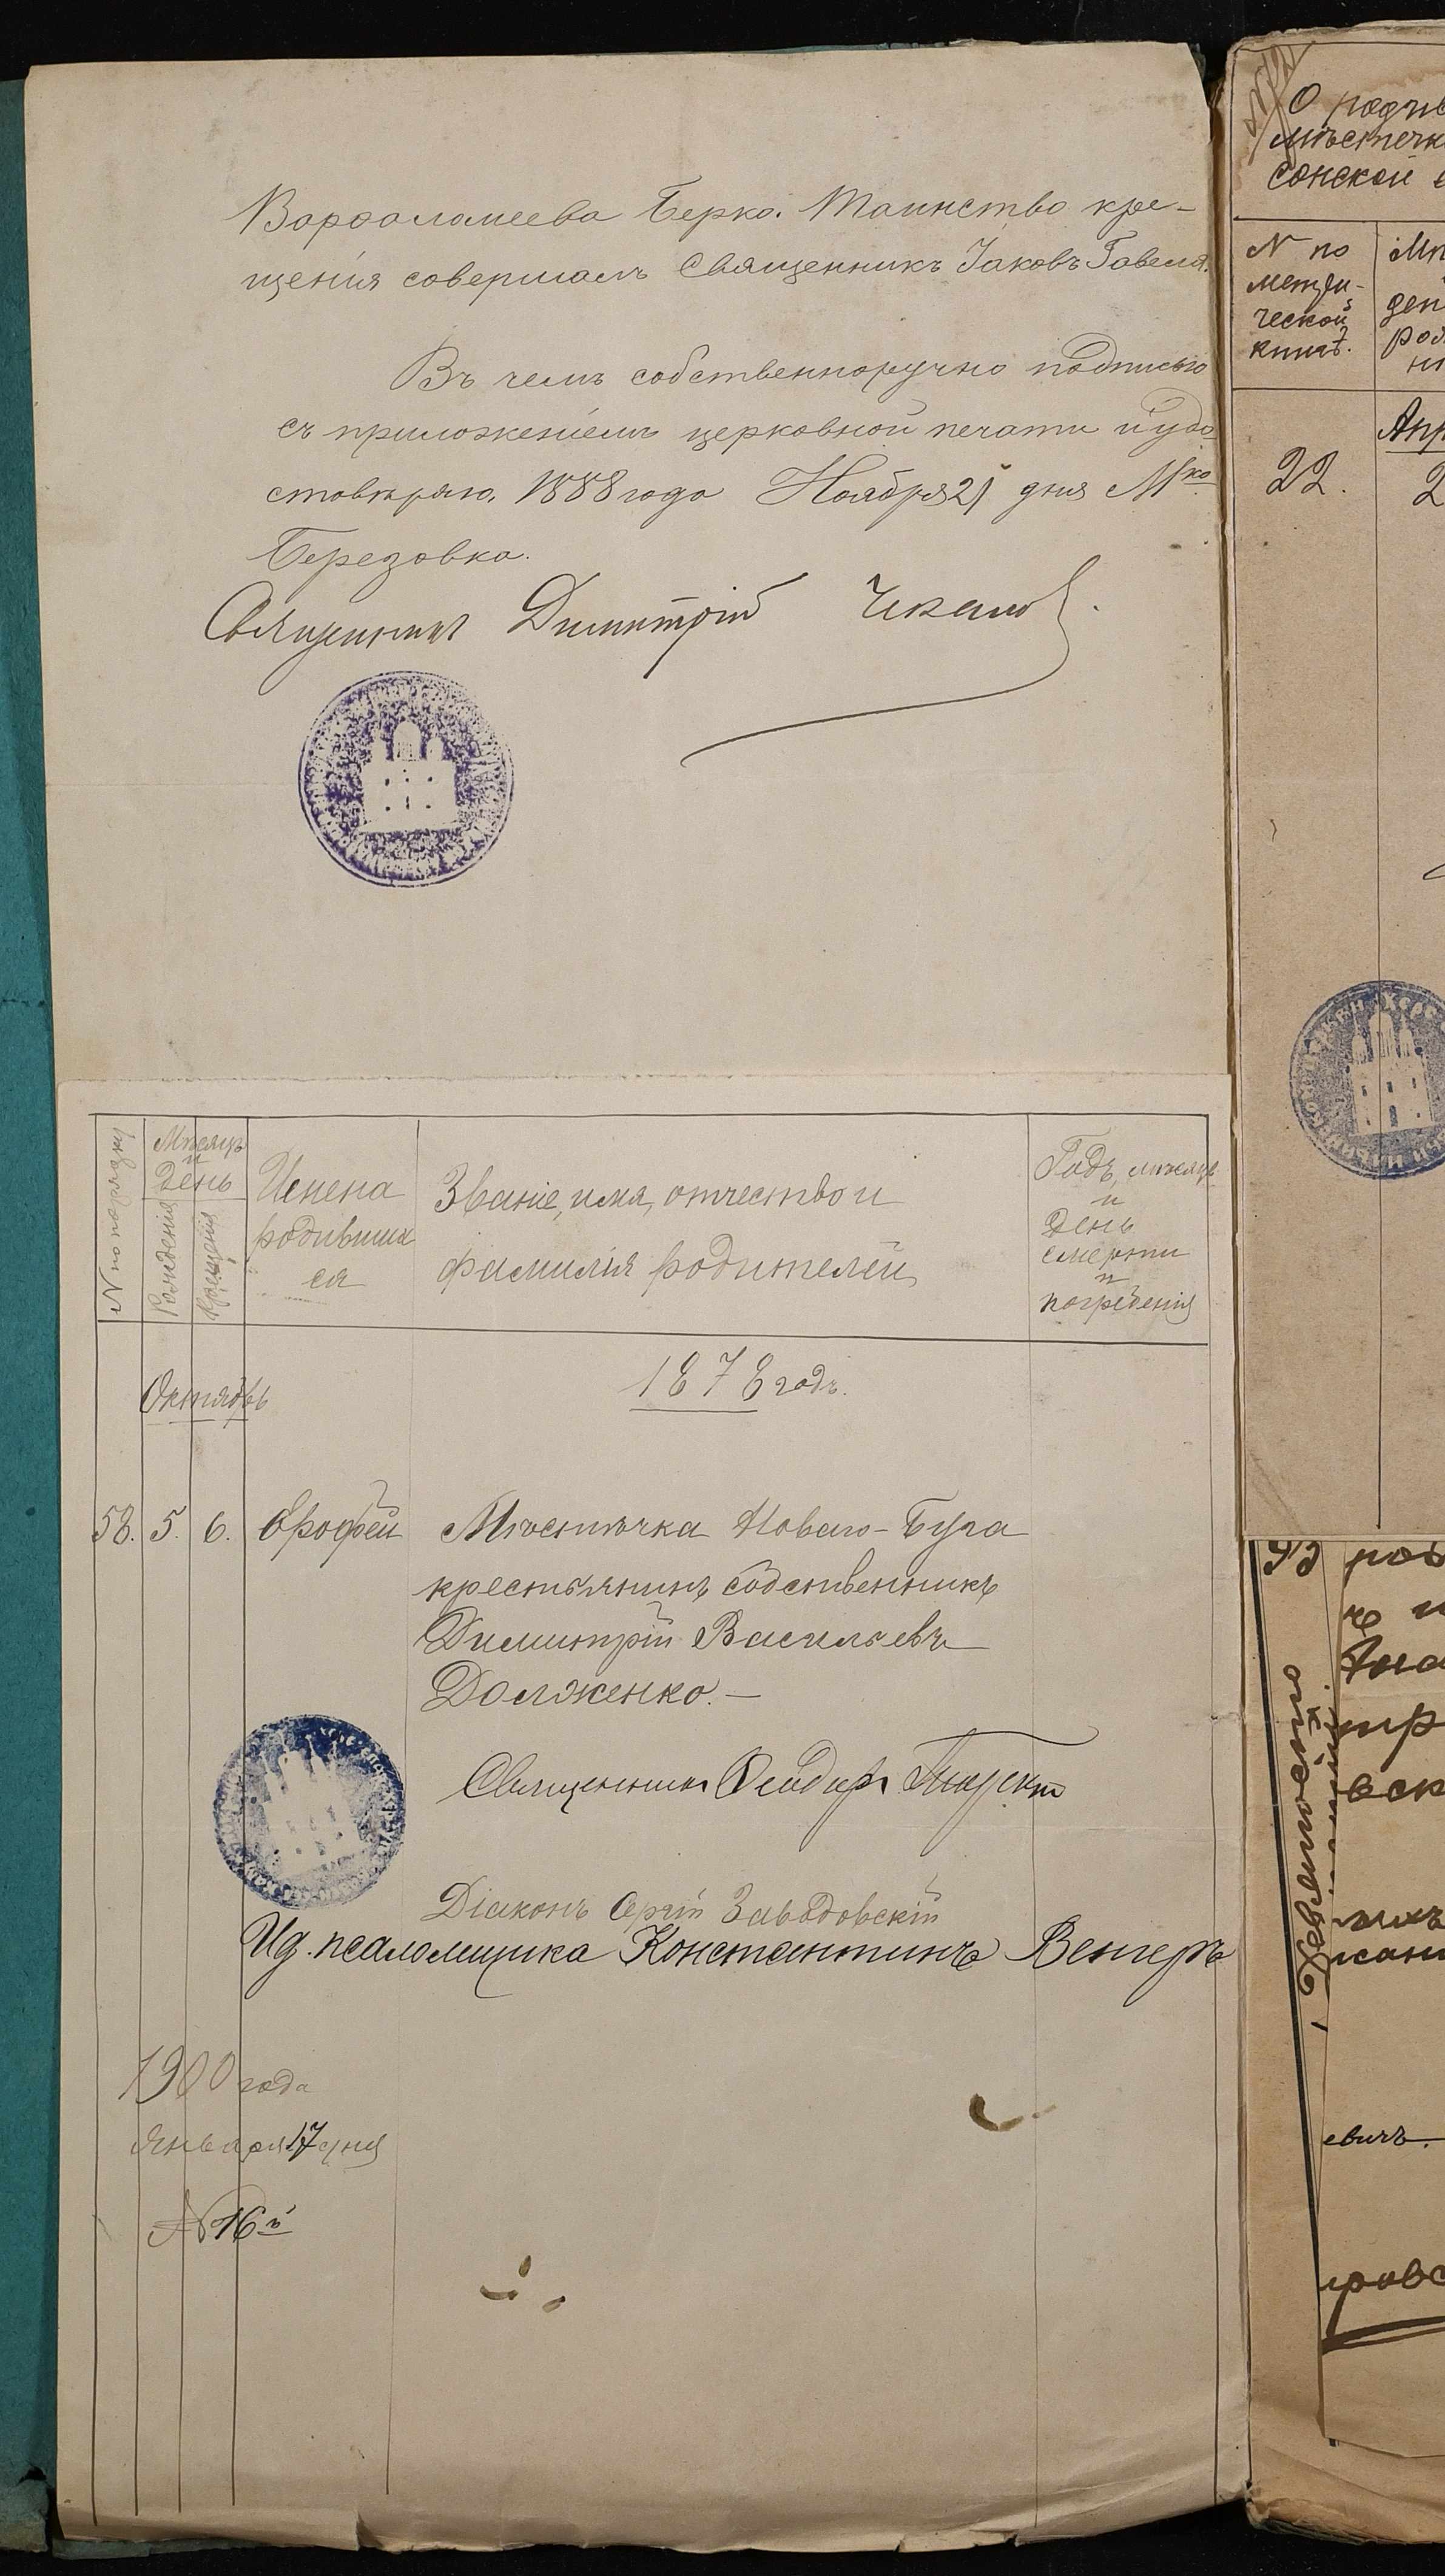 Вардоламеева Берко. Таинство кре-
щенія совершалъ Священникъ Іаковъ Гавеля.
Въ чемъ собственноручно подписью
съ приложеніемъ церковной печати и удо
стовѣряю, 1888 года Ноября 21 дня М<sup>ко</sup>
Березовка.
Священникъ Димитрій Чкалов.
№ по порядку
Мѣсяцъ
и
День
Рожденія
Крещенія
Имена
родивших
ся
Званіе, имя, отчество и
фамилія родителей
Годъ, мѣсяцъ
и
День
смерти
и
погребенія
Октябрь
1878 годъ.
58. 5. 6. Ерофей
Мѣстѣчка Новаго-Буга
крестьянинъ собственникъ
Димитрій Васильевъ
Долженко. —
Священникъ Ѳеодоръ
Діаконъ Сергій Завадовскій
Ид. псаломщика Константинъ Венгеръ
1900 года
Января 17 дня
№ 16й
О
мѣстечк
сонской
№ по
метри-
ческой
книгѣ.
Апр
22. 2
евичъ.